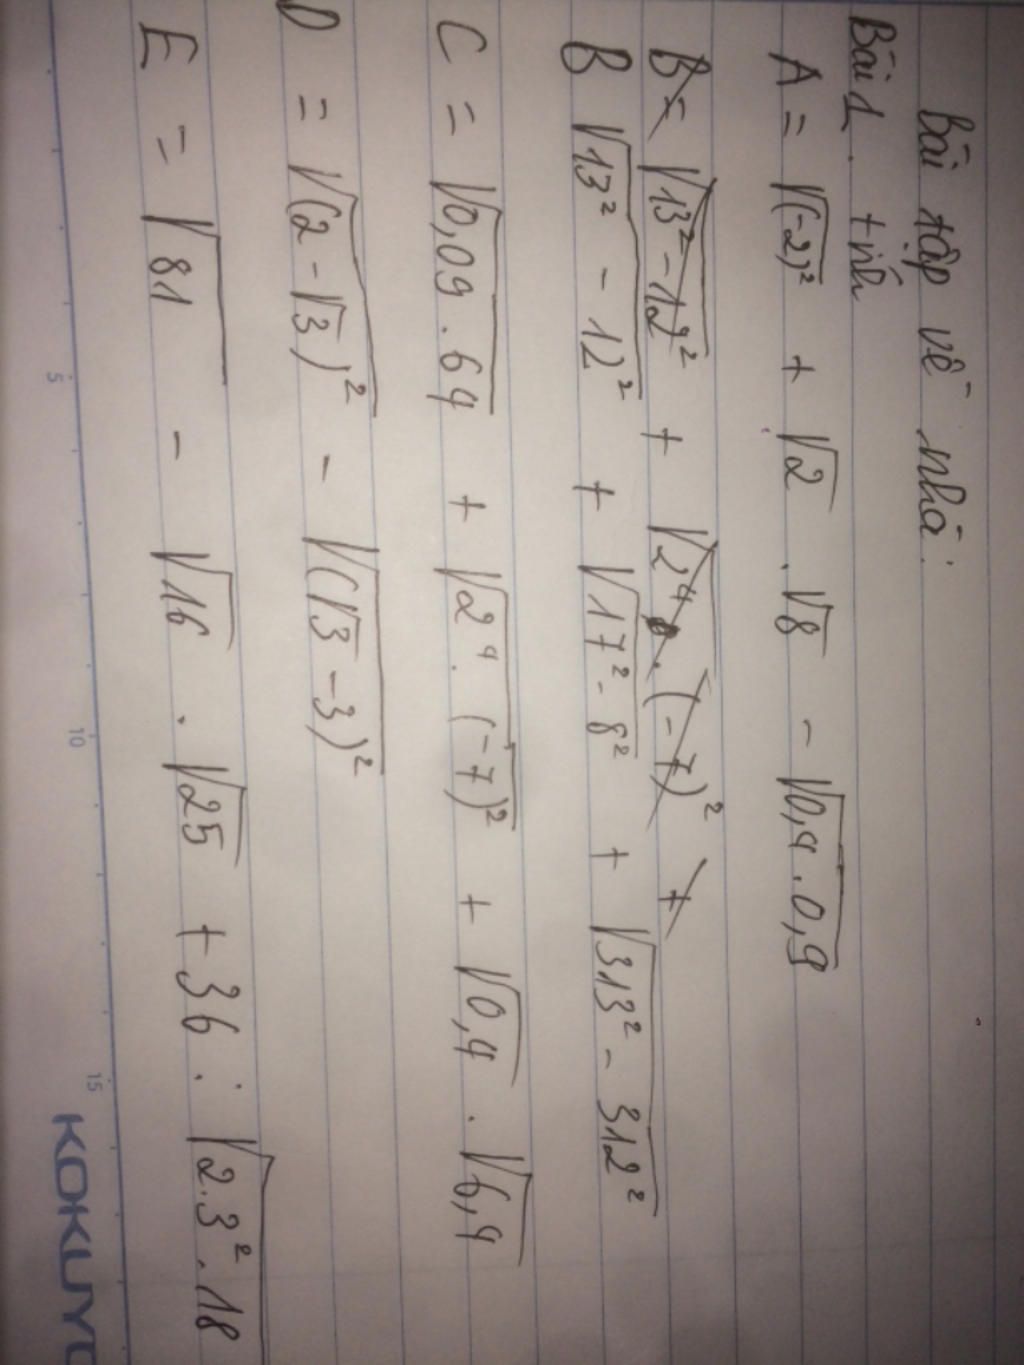 Bài tập về nhà:
Bài 1. tính
A = √(-2)² + √2 . √8 - √0,4.0,9
B = √13²-12² + √2⁴ . (-7)² +
B √13² - 12² + √17² - 8² + √313² - 312²
C = √0,09 . 64 + √2⁴ . (-7)² + √0,4 . √6,4
D = √(2-√3)² - √(√3-3)²
E = √81 - √16 . √25 + 36 : √2.3².18
5 10 15
KOKUYO